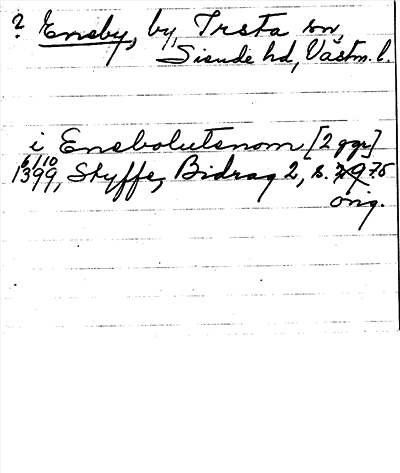 ? Ensby, by, Irsta sn,
Siende hd, Västm. l.
i Ensbolutsnom [2 ggr]
6/10
1399, Styffe, Bidrag 2, s. 75
orig.